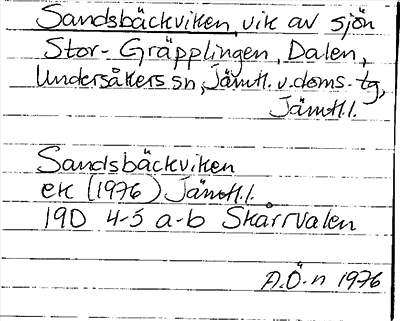 Sandsbäckviken, vik av sjön
Stor-Gräpplingen, Dalen,
Undersåkers sn, Jämtl. v. doms. tg,
Jämtl.l.
Sandsbäckviken
ek (1976) Jämtl.l.
19D 4-5 a-b Skårrvalen
A.Ö-n 1976